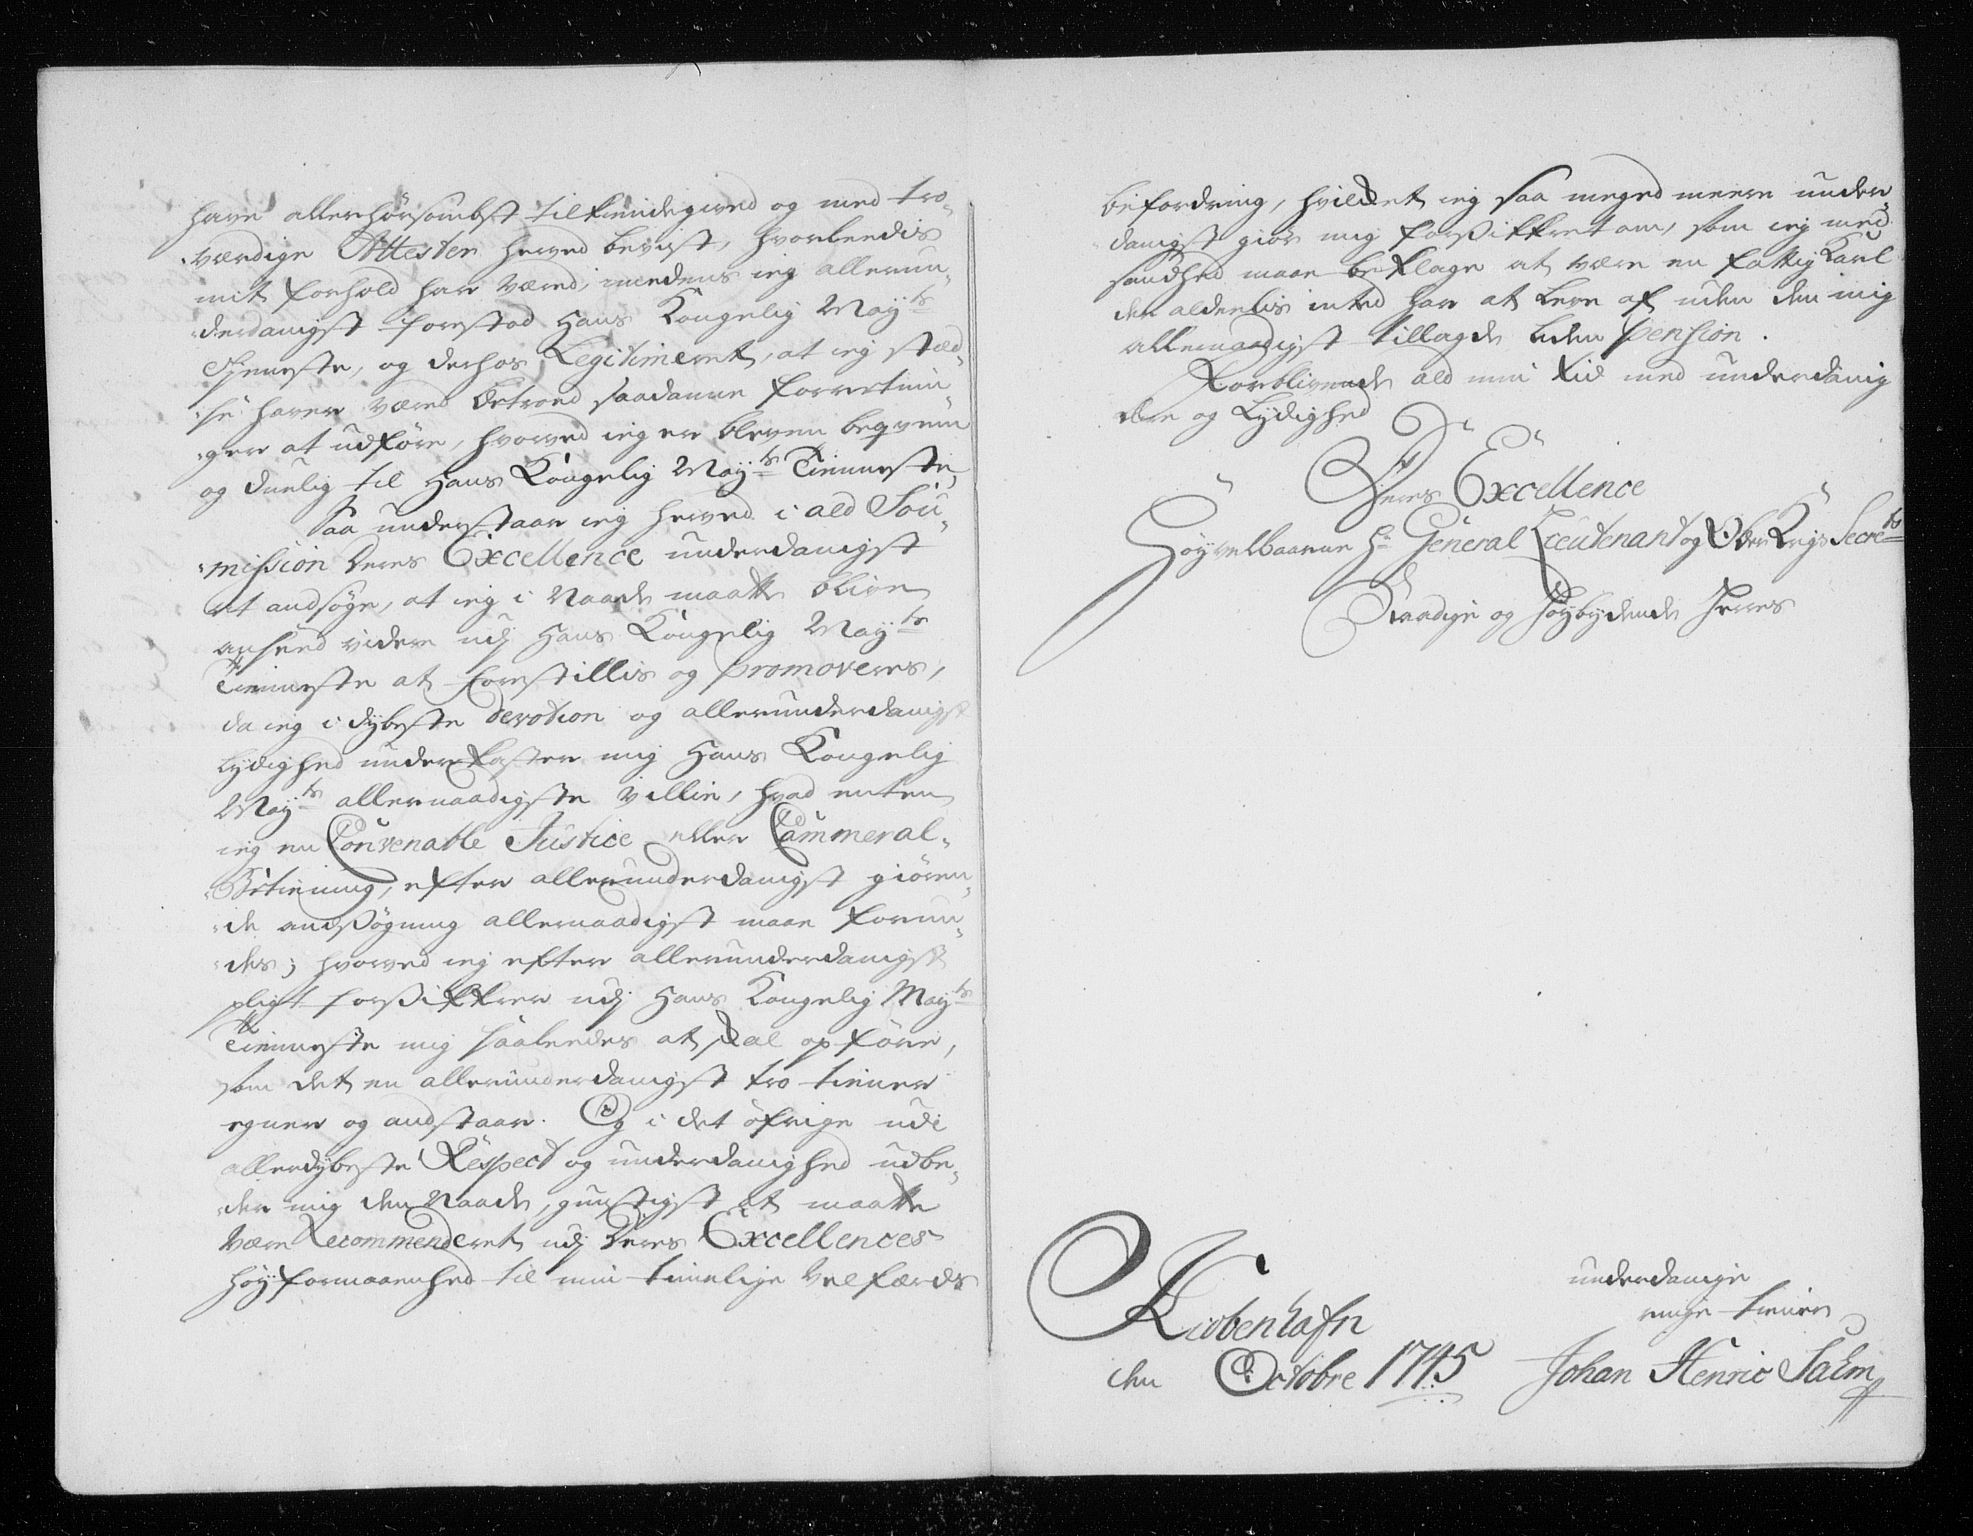 have allerhørsombst tilkiendegived og med tro-
værdige Attester herved bevist, hvorleedis
mit forhold har været, imedens ieg allerun-
derdanigst forestod Hans Kongelig May:ts
Tieneste, og derhos Legitimeret, at ieg stæd-
se haver været betroed saadanne forretnin-
ger at udføre, hvorved ieg er bleven beqvem
og duelig til Hans Kongelig May:ts Tienneste,
Saa understaar ieg herved i ald Sou-
mission Deres Excellence underdanigst
at andsøge, at ieg i Naade maatte blive
anseed videre udj Hans Kongelig May:ts
Tienneste at forestillis og promoveres,
da ieg i dybeste devotion og allerunderdanigst
lydighed underkaster mig Hans Kongelig
May:ts allernaadigste Villie, hvad enten
ieg en Convenable Justice eller Cammeral-
Betiening, efter allerunderdanigst giøren-
de andsøgning allernaadigst maae forun-
des; hvorved ieg efter allerunderdanigst
pligt forsikkrer udj Hans Kongelig May:ts
Tienneste mig saaleedes at skal opføre,
som det en allerunderdanigst tro tiener
egner og andstaar. Og i det øfrige udi
allerdybeste Respect og underdanighed udbe-
der mig den Naade, gunstigst at maatte
være Recommenderet udj Deres Excellences
høyformaaenhed til min timelige Velfærds
befordring, hvilket ieg saa meged meere under-
danigst giør mig forsikkret om, som ieg med
sandhed maae beklage at være en fattig Karl
der aldeelis inted har at leve af uden den mig
allernaadigst tillagde liden Pension.
Forblivende ald min Tid med underdanig
ære og Lydighed
Deres Excellence
Høyvelbaarne Hr General Lieutenant og Ober Krigs Secret:s
Naadige og Høybydende Herres
Kiøbenhafn
den Octobre 1745
underdanige
ringe tiener
Johan Henric Salm